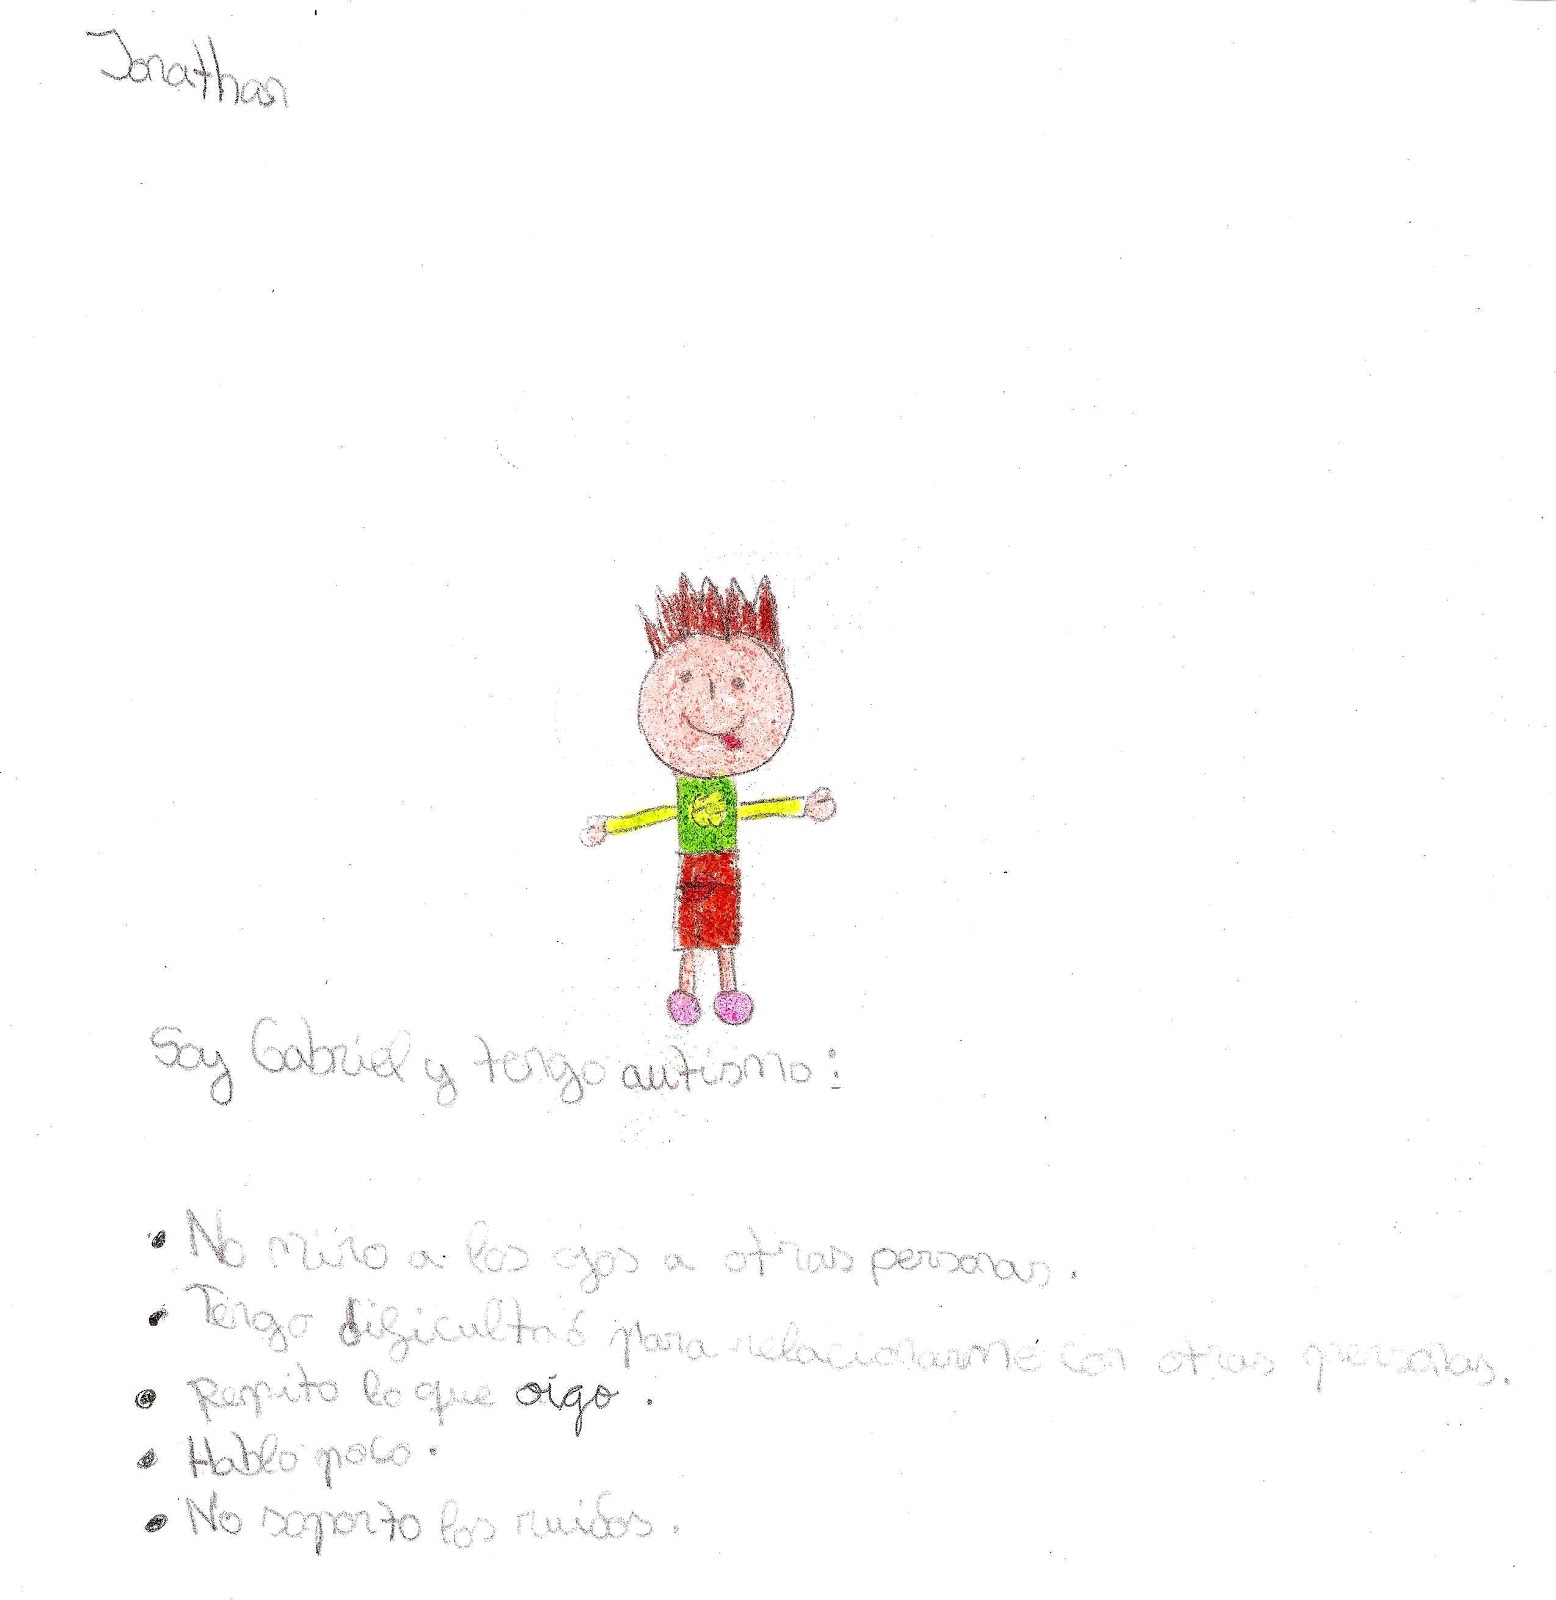 Jonathan
Soy Gabriel y tengo autismo:
• No miro a los ojos a otras personas.
• Tengo dificultad para relacionarme con otras personas.
• Repito lo que oigo.
• Hablo poco.
• No soporto los ruidos.